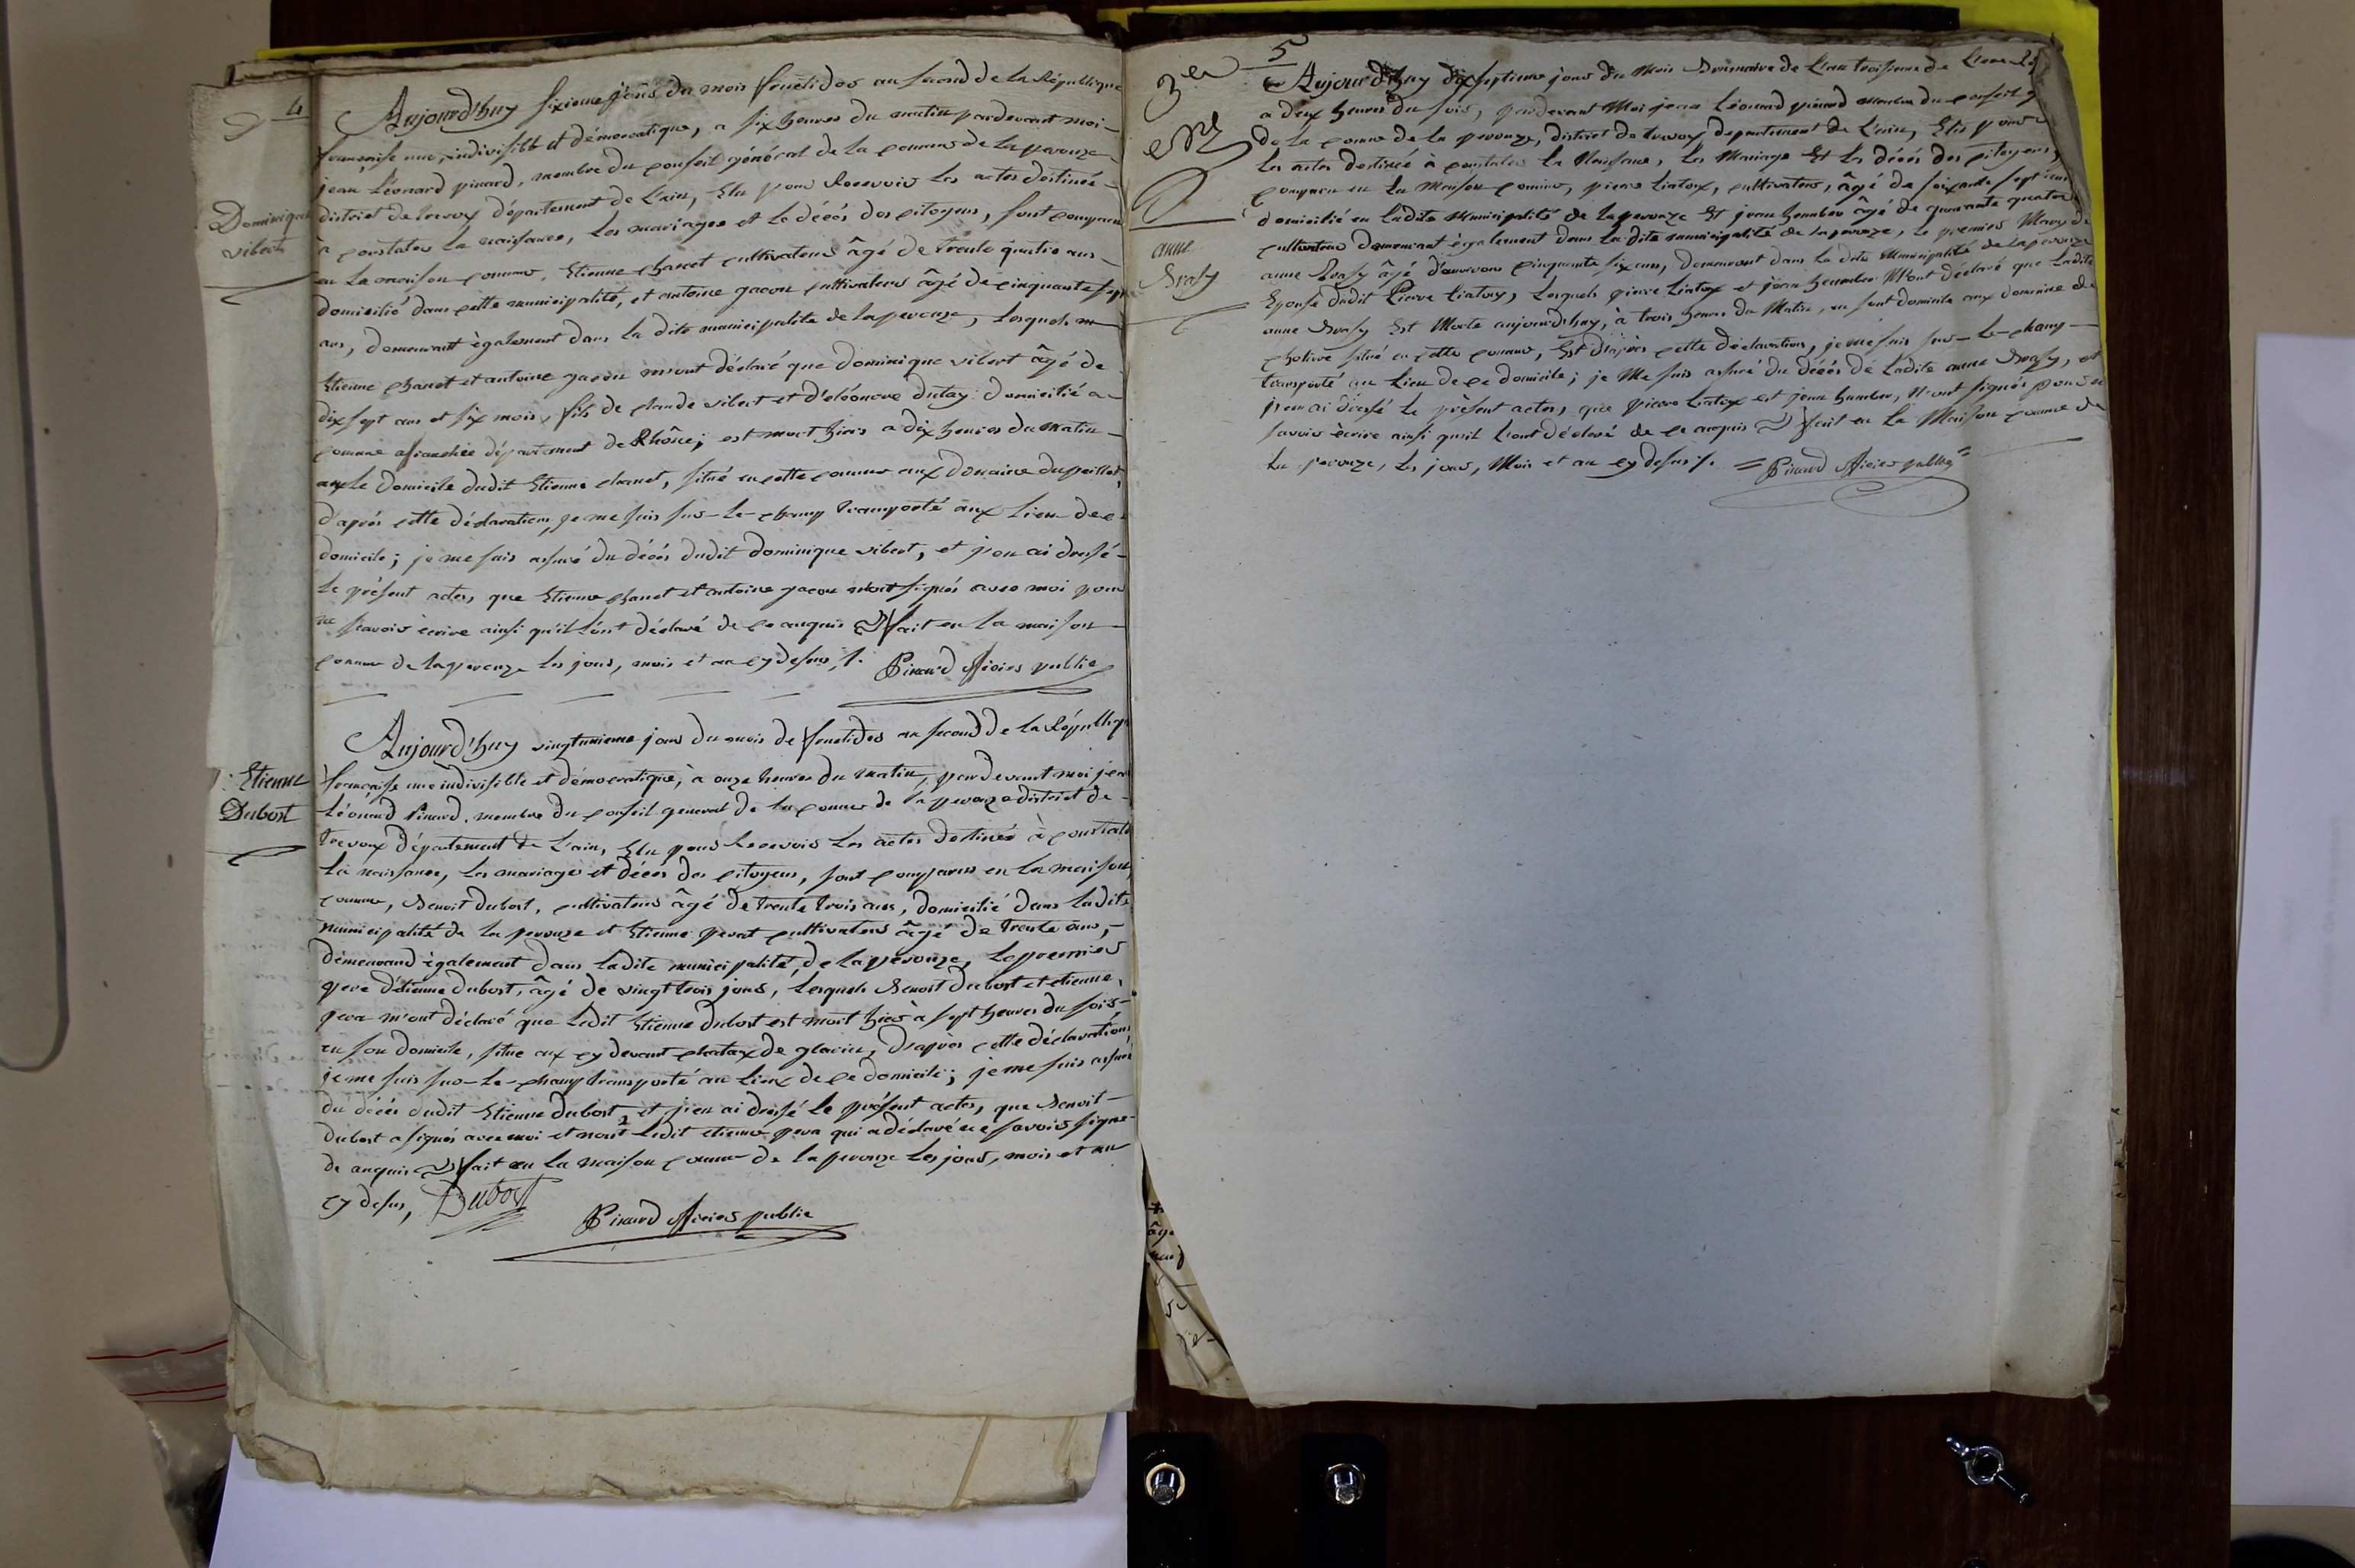 4
Aujourd'huy sixieme jours du mois fructidor an second de la République
française une, indivisible et démocratique, a six heures du matin pardevant moi
jean Léonard pinard, membre du conseil général de la comune de laperouze
Dominique
vibert
district de trevoux département de L'ain, Elu pour Recevoir les actes destinés
à constater la naissance, les mariages et le décés des citoyens, sont comparus
en la maison comune, Etienne chanet cultivateur âgé de trente quatre ans
domicilié dans cette municipalité, et antoine gacon cultivateur âgé de cinquante sept
ans, demeurant également dans la dite municipalite de laperouze, lesquels
Etienne chanet et antoine gacon m'ont déclaré que dominique vibert âgé de
dix sept ans et six mois, fils de claude vibert et d'eléonore dutay domicilié a
comune afranchie département de Rhône; est mort hiers a dix heures du matin
aux le domicile dudit Etienne chanet, situé en cette comune aux Domaine
d'aprés cette déclaration, je me suis sur-le-champ transporté aux lieu de ce
domicile; je me suis assuré du décés dudit dominique vibert, et j'en ai dressé
le présent actes, que Etienne chanet et antoine gacon n'ont signés avec moi pour
ne scavoir écrire ainsi qu'il l'ont déclaré de ce anquis fait en la maison
comune de laperouze les jours, mois et an cy desus /. Pinard oficier public
Aujourd'huy vingtunieme jour du mois de fructidor an second de la Républiqu
Etienne
Dubost
française une indivisible et démocratique, à onze heures du matin, pardevant moi jean
Léonard Pinard, membre du conseil general de la comune de la perouze district de
trevoux département de L'ain, Elu pour Recevoir les actes destinés à constate
la naissance, les mariages et décés des citoyens, sont comparus en la maison
comune, Benoit dubost, cultivateur âgé de trente trois ans, domicilié dans ladite
municipalité de la perouze et Etienne perat cultivateur âgé de trente ans,
demeurand également dans ladite municipalité, de laperouze, le premier
pere d'étienne dubost, âgé de vingt trois jours, Lesquels Benoit dubost et etienne
pera m'ont déclaré que ledit Etienne dubost est mort hier à sept heures du soir
en son domicile, situe aux cy devant chatax de glarin, d'après cette déclaration
je me suis sur-le-champ transporté au lieux de ce domicile; je me suis assuré
du décés dudit Etienne dubost, et j'en ai dressé le présent actes, que Benoit
dubost a signés avec moi et nont ledit etienne pera qui a déclaré ne savoir signe
de anquis fait en la maison comune de la perouze les jour, mois et an
cy desus, Dubost
Pinard oficier public
5
3er
Aujourd'huy dix septieme jour du mois Brumaire de L'an troisieme de
a deux heures du soir, pardevant Moi jean Léonard pinard membre du conseil g
de la comune de la perouze, district de trevoux departement de L'ain, Elu pour
les actes destinée à constater la Naissance, les Mariage Et les décés des citoyens,
comparu en la Maison comune, pierre liatoux, cultivateur, âgé de soixante sept ans
domicilié en ladite Municipalité de laperouze Et jean humber âgé de quarante quatre
cultivateur demeurant également dans ladite municipalité de laperouze, le premier Mary de
anne
Brasy
anne Brasy âgé d'environ cinquante six ans, demeurant dans la dite Municipalité de laperouze
Epouse dudit Pierre liatoux, lesquels pierre liatoux et jean humber M'ont déclaré que ladite
anne Brasy Est Morte aujourd'huy, à trois heures du Matin, en sont domicile aux domaine de
situé en cette comune, Est d'après cette déclaration, je me suis sur-le-champ
transporté au lieu de ce domicile; je Me suis assuré du décés de ladite anne Brasy, et
j'en ai dressé le présent actes, que pierre liatox et jean humber, n'ont signés pour ne
savoir écrire ainsi quil l'ont déclaré de ce anquis fait en la Maison comune de
la perouze, les jour, Mois et an cy desus /. = Pinard oficier public =